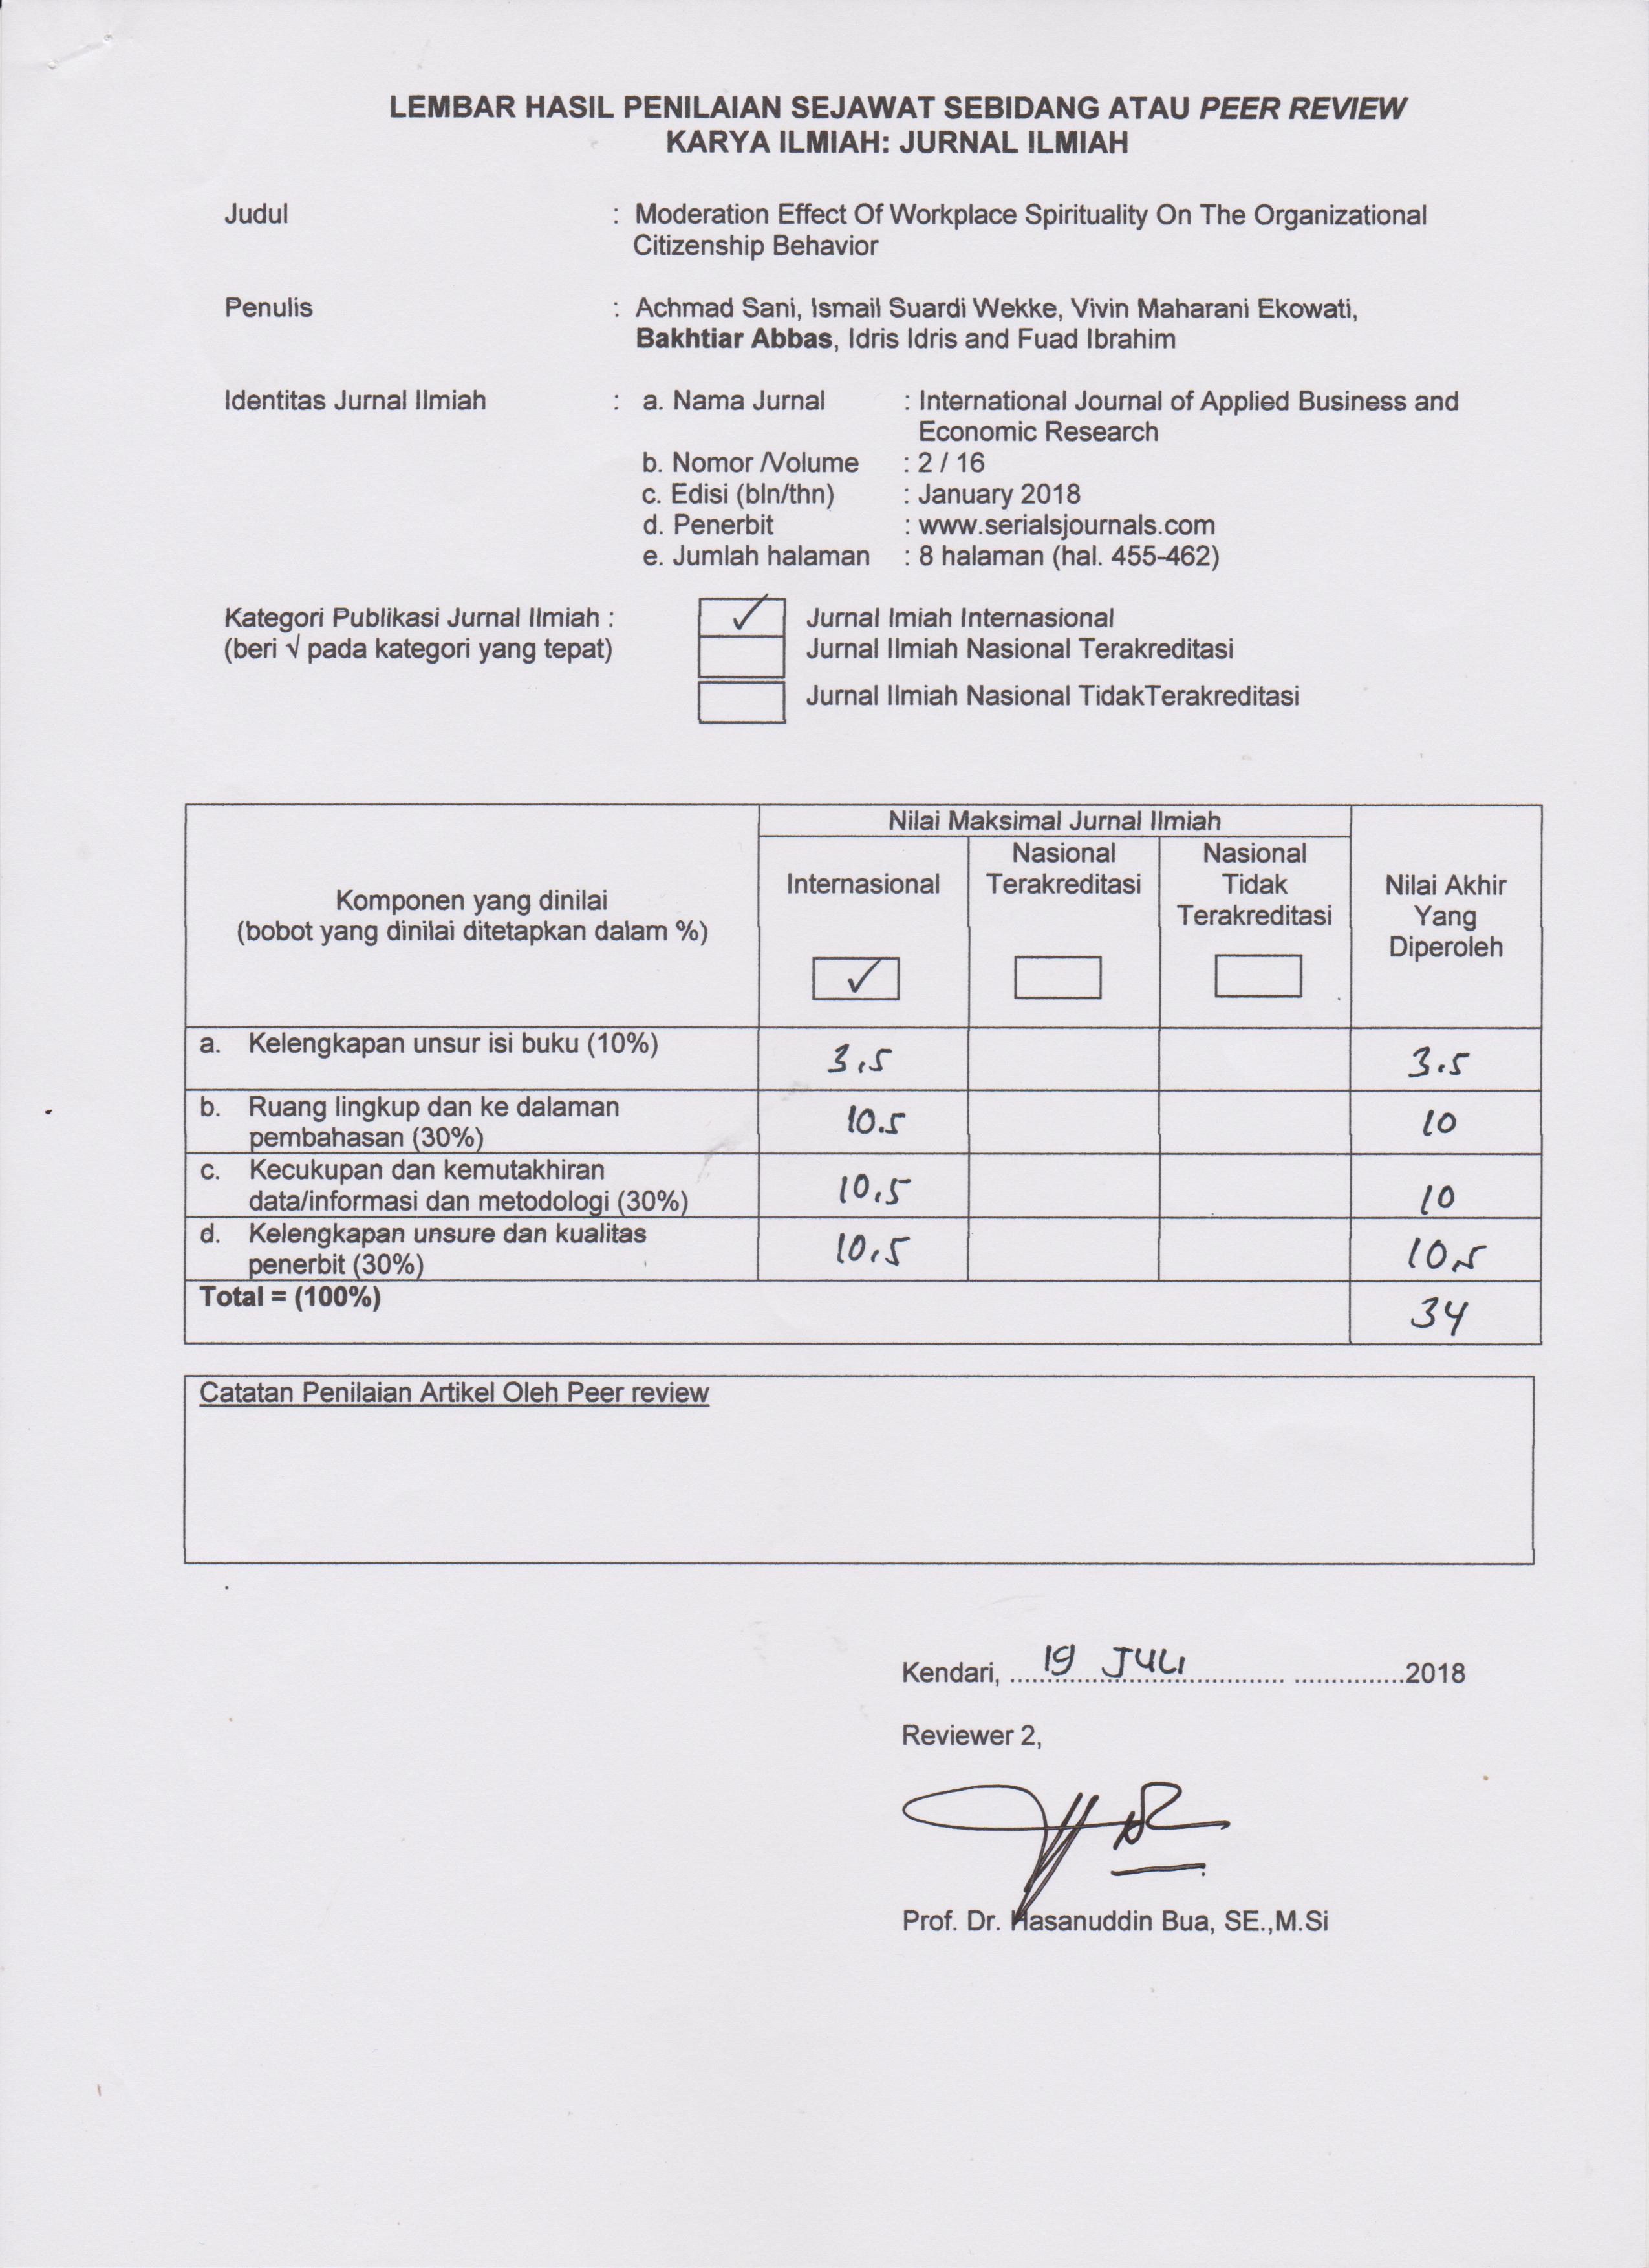 LEMBAR HASIL PENILAIAN SEJAWAT SEBIDANG ATAU PEER REVIEW
KARYA ILMIAH: JURNAL ILMIAH
Judul : Moderation Effect Of Workplace Spirituality On The Organizational
Citizenship Behavior
Penulis : Achmad Sani, Ismail Suardi Wekke, Vivin Maharani Ekowati,
Bakhtiar Abbas, Idris Idris and Fuad Ibrahim
Identitas Jurnal Ilmiah : a. Nama Jurnal : International Journal of Applied Business and
Economic Research
b. Nomor /Volume : 2 / 16
c. Edisi (bln/thn) : January 2018
d. Penerbit : www.serialsjournals.com
e. Jumlah halaman : 8 halaman (hal. 455-462)
Kategori Publikasi Jurnal Ilmiah : ✓ Jurnal Imiah Internasional
(beri √ pada kategori yang tepat) Jurnal Ilmiah Nasional Terakreditasi
Jurnal Ilmiah Nasional TidakTerakreditasi
Komponen yang dinilai
(bobot yang dinilai ditetapkan dalam %)
Nilai Maksimal Jurnal Ilmiah
Internasional
✓
Nasional
Terakreditasi
Nasional
Tidak
Terakreditasi
Nilai Akhir
Yang
Diperoleh
a. Kelengkapan unsur isi buku (10%) 3,5 3.5
b. Ruang lingkup dan ke dalaman
pembahasan (30%) 10.5 10
c. Kecukupan dan kemutakhiran
data/informasi dan metodologi (30%) 10,5 10
d. Kelengkapan unsure dan kualitas
penerbit (30%) 10,5 10,5
Total = (100%) 34
Catatan Penilaian Artikel Oleh Peer review
Kendari, ....19 JULI.................... ...............2018
Reviewer 2,
Prof. Dr. Hasanuddin Bua, SE.,M.Si